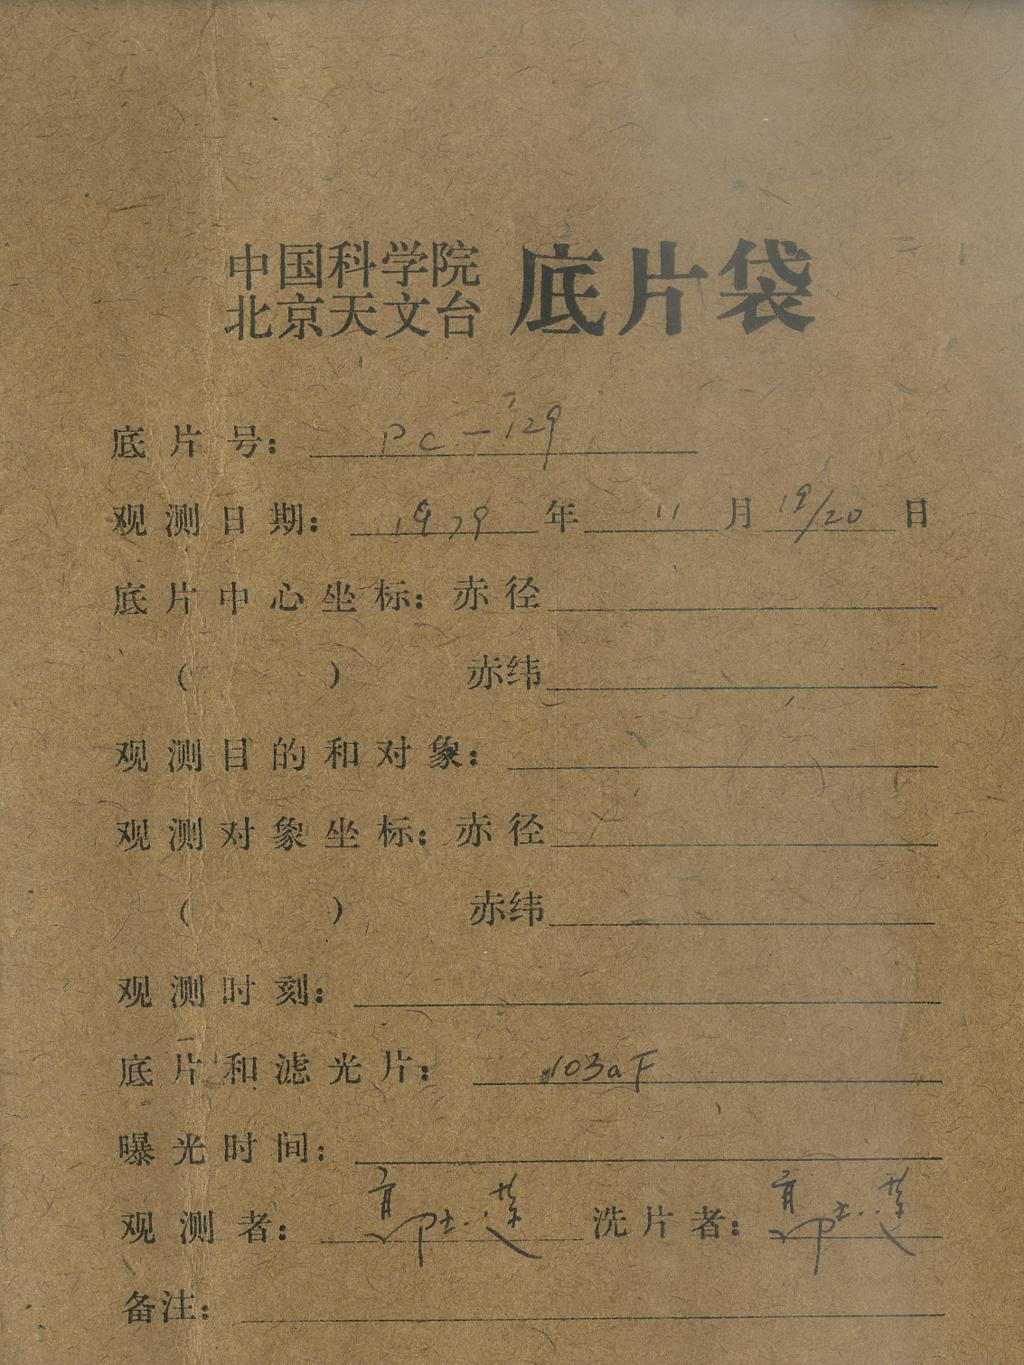 中国科学院
北京天文台 底片袋
底片号： PC-129
观测日期： 1979 年 11 月 19/20 日
底片中心坐标：赤径
( ) 赤纬
观测目的和对象：
观测对象坐标：赤径
( ) 赤纬
观测时刻：
底片和滤光片： 103aF
曝光时间：
观测者： 洗片者：
备注：